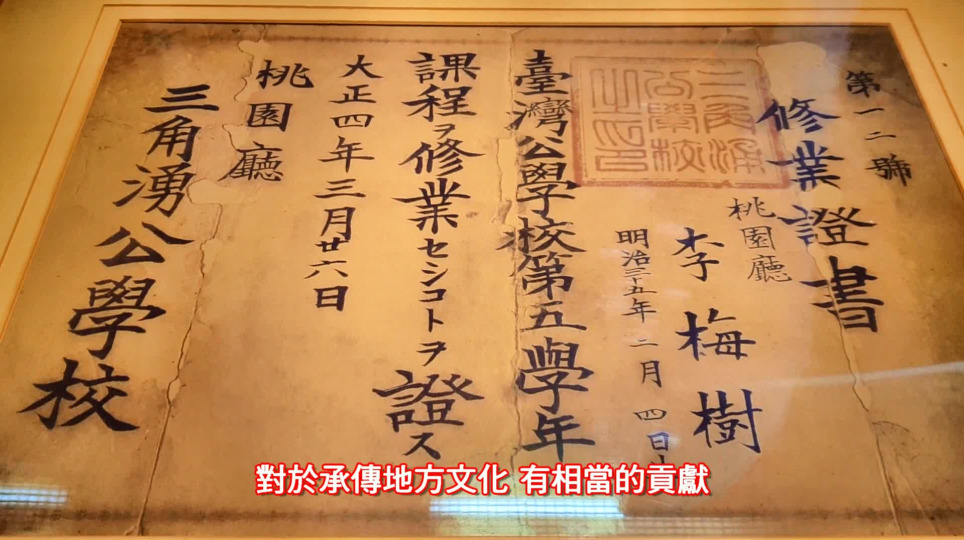 第一二號
修業證書
桃園廳
李梅樹
明治三十五年二月四日
三角湧
公學校
之印
臺灣公學校第五學年
課程ヲ修業セシコトヲ證ス
大正四年三月廿六日
桃園廳
三角湧公學校
對於承傳地方文化 有相當的貢獻